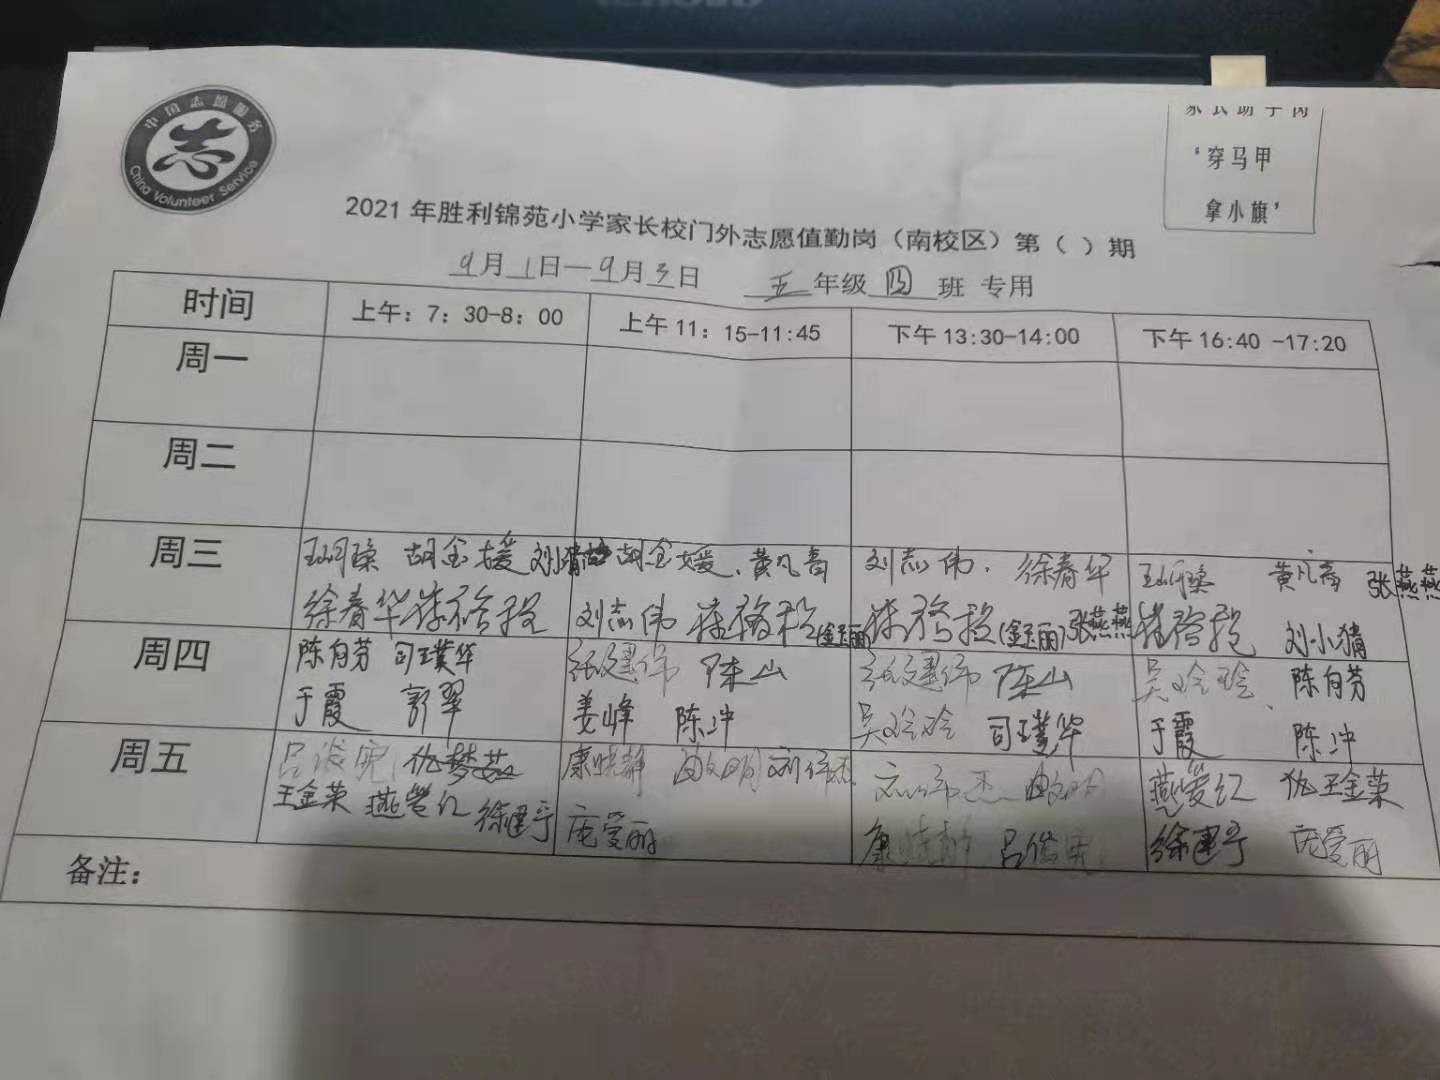 中国志愿服务
志
China Volunteer Service
家长助学岗
‘穿马甲
拿小旗’
2021年胜利锦苑小学家长校门外志愿值勤岗（南校区）第（ ）期
9月1日—9月3日 五年级四班 专用
时间 上午：7：30-8：00 上午11：15-11:45 下午13:30-14:00 下午16:40 -17:20
周一
周二
周三 胡金媛 胡金媛、黄凡高 刘志伟、徐春华 黄凡高 张燕燕
徐春华 刘志伟 张燕燕 刘小猜
周四 陈自芬 司璞华 张建伟 陈山 张建伟 陈山 吴玲玲、陈自芬
于霞 郭翠 姜峰 陈冲 吴玲玲 司璞华 于霞 陈冲
周五 康晓静 刘伟杰 刘伟杰 燕爱红 王金荣
王金荣 燕爱红 徐建宁 庞爱丽 康晓静 吕俊宪 徐建宁 庞爱丽
备注：